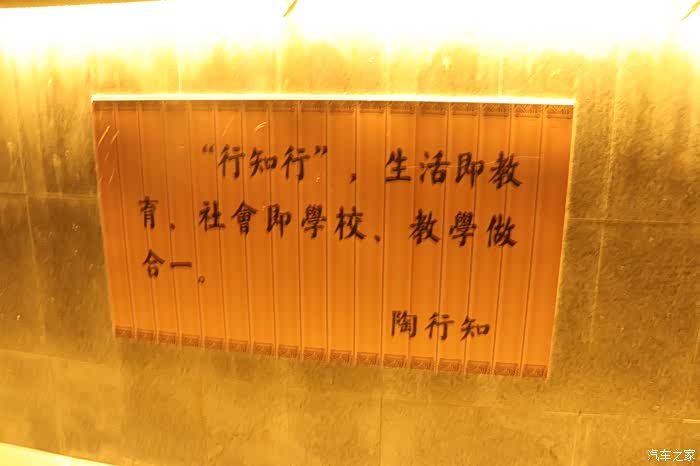 “行知行”，生活即教
育、社會即學校、教學做
合一。
陶行知
汽车之家